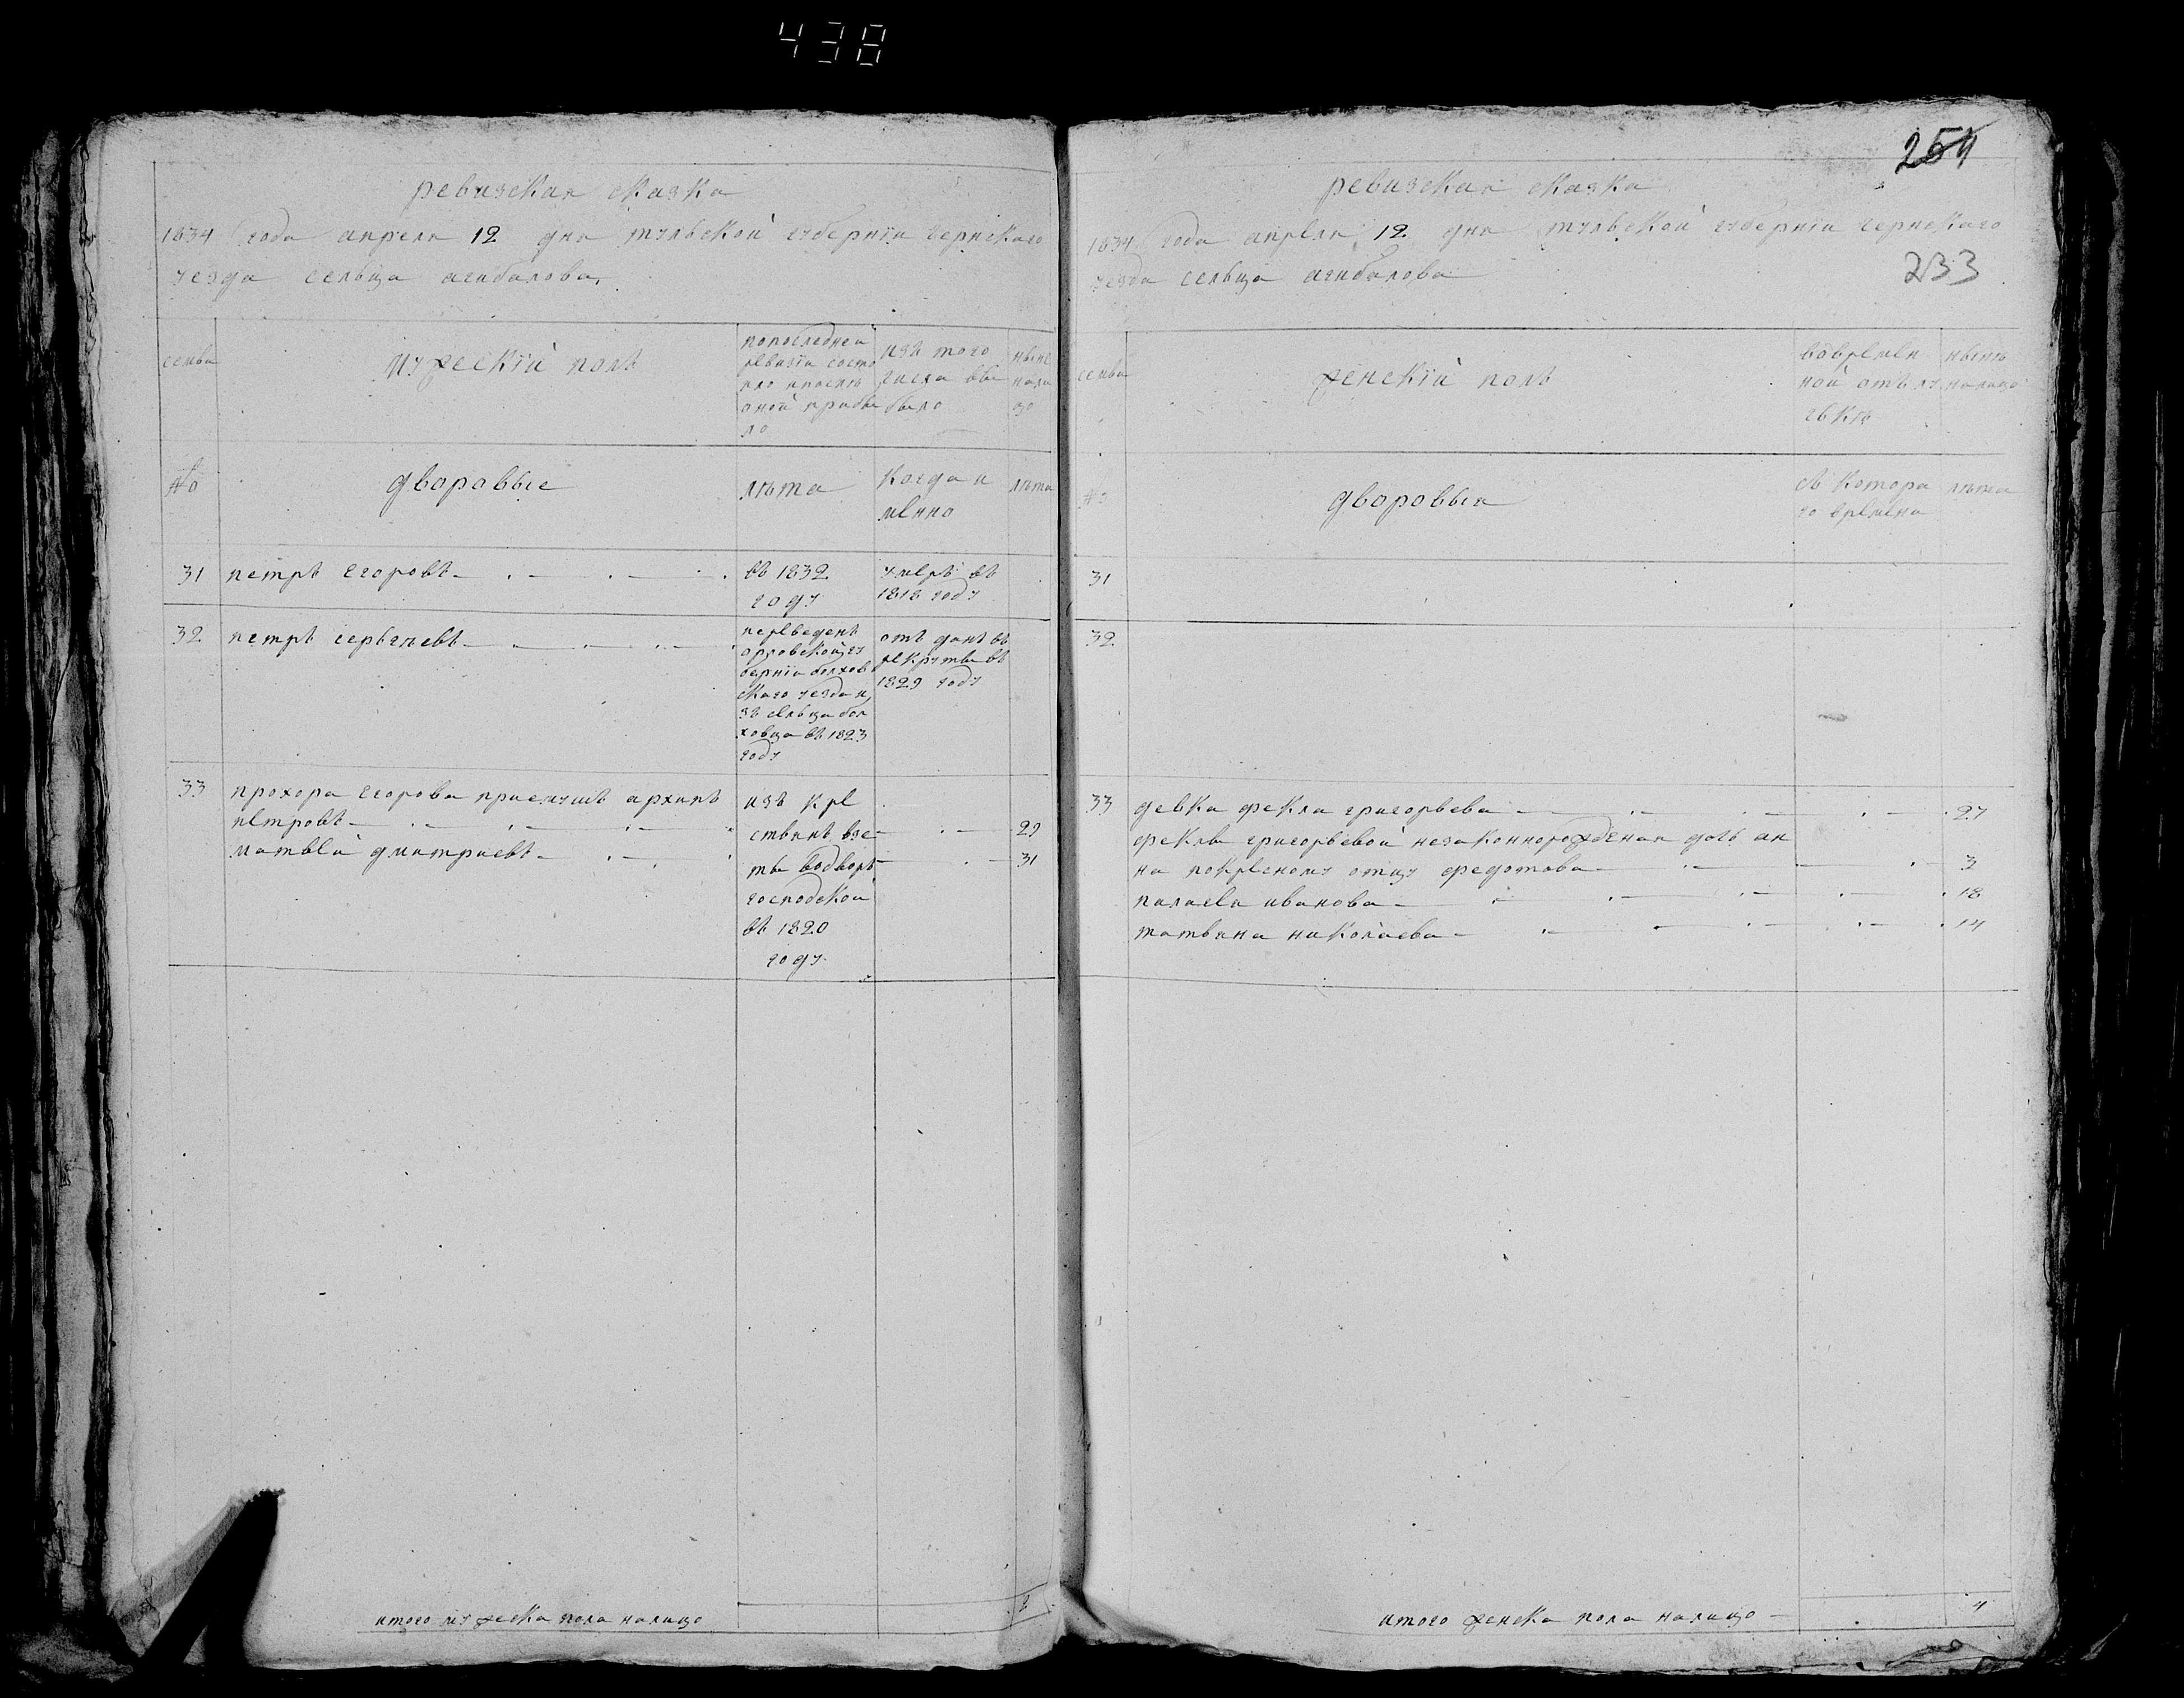 438
254
233
ревизская сказка
1834 года апреля 12 дня тульской губернїи Чернскаго
уезда сельца агибалова
семьи
мужескїй полъ
попоследнеи
ревизїи состо
яло ипослѣ
оной прибы
ло
изъ того
числа вы
было
ныне
нали
цо
№
дворовые
лѣта
когда и
мѣнно
лѣта
31 петръ Егоровъ
въ 1832
году
умеръ въ
1818 году
32 петръ сергѣевъ
переведенъ
орловской гу
бернїи болхов
скаго уезда и
зъ сельца бол
ховца въ 1823
году
отъ данъ въ
рекруты въ
1829 году
33 прохора Егорова приемушъ архипъ
петровъ 29
матвей дмитриевъ 31
изъ кре
стьянъ взе
ты водворъ
господской
въ 1820
году
итого мужеска пола налицо
2
ревизская сказка
1834 года апреля 12 дня тульской губернїи чернскаго
уезда сельца агибалова
семьи
женскїй полъ
вовремен
ной отълу
чькѣ
нынѣ
налицо
№
дворовыя
съ котора
го времѣни
лѣта
31
32
33 девка фекла григорьева 27
феклы григорьевой незаконнорожденая дочь ан
на покресному отцу федотова 3
палагея иванова 18
татьяна николаева 14
итого женска пола налицо
4